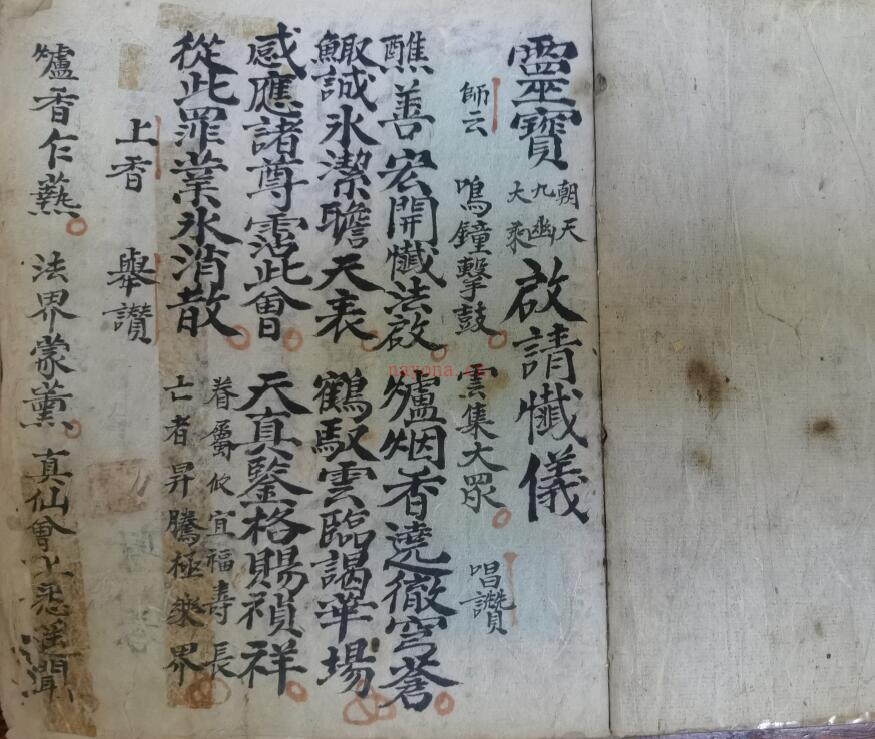 靈寶朝天九幽大乘啟請懺儀
師云 鳴鐘擊鼓 雲集大眾 唱讚
醮善宏開懺法啟 爐烟香遶徹穹蒼
鯫誠氷潔瞻天表 鶴馭雲臨謁華場
感應諸尊霑此會 天真鑒格賜禎祥
從此罪業氷消散 眷屬攸宜福壽長
亡者昇騰極樂界
上香 舉讚
爐香乍爇 法界蒙薰 真仙會上悉遥聞
nayona.cn